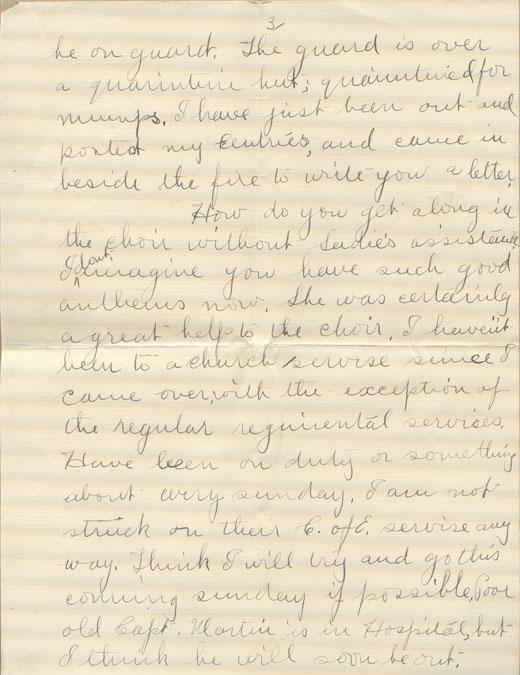 3
be on guard. The guard is over
a quarintine hut; quaintined for
mumps. I have just been out and
posted my centries, and came in
beside the fire to write you a letter.
How do you get along in
the choir without Sadie's assistance
I don't imagine you have such good
anthems now. She was certainly
a great help to the choir. I haven't
been to a church servise since I
came over, with the exception of
the regular regimental servises.
Have been on duty or something
about every sunday. I am not
struck on their C. of E. servise any
way. Think I will try and go this
comming sunday if possible. Poor
old Capt. Martin is in Hospital, but
I think he will soon be out.